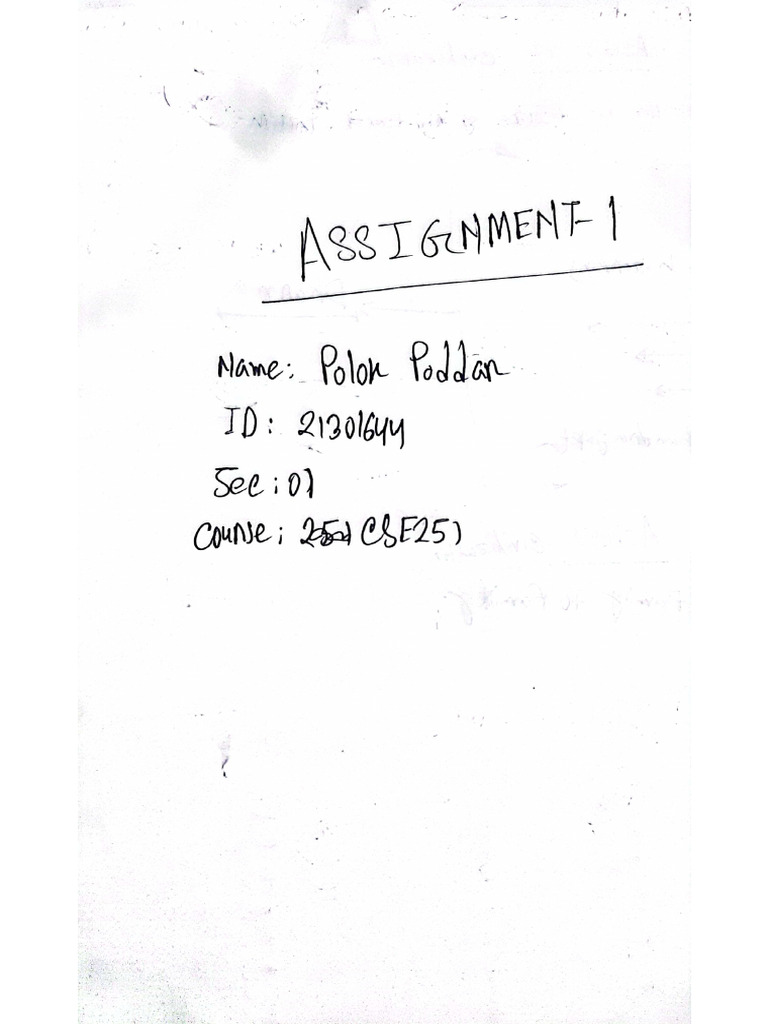 ASSIGNMENT-1
Name: Polok Poddar
ID: 21301644
Sec: 01
Course: CSE251